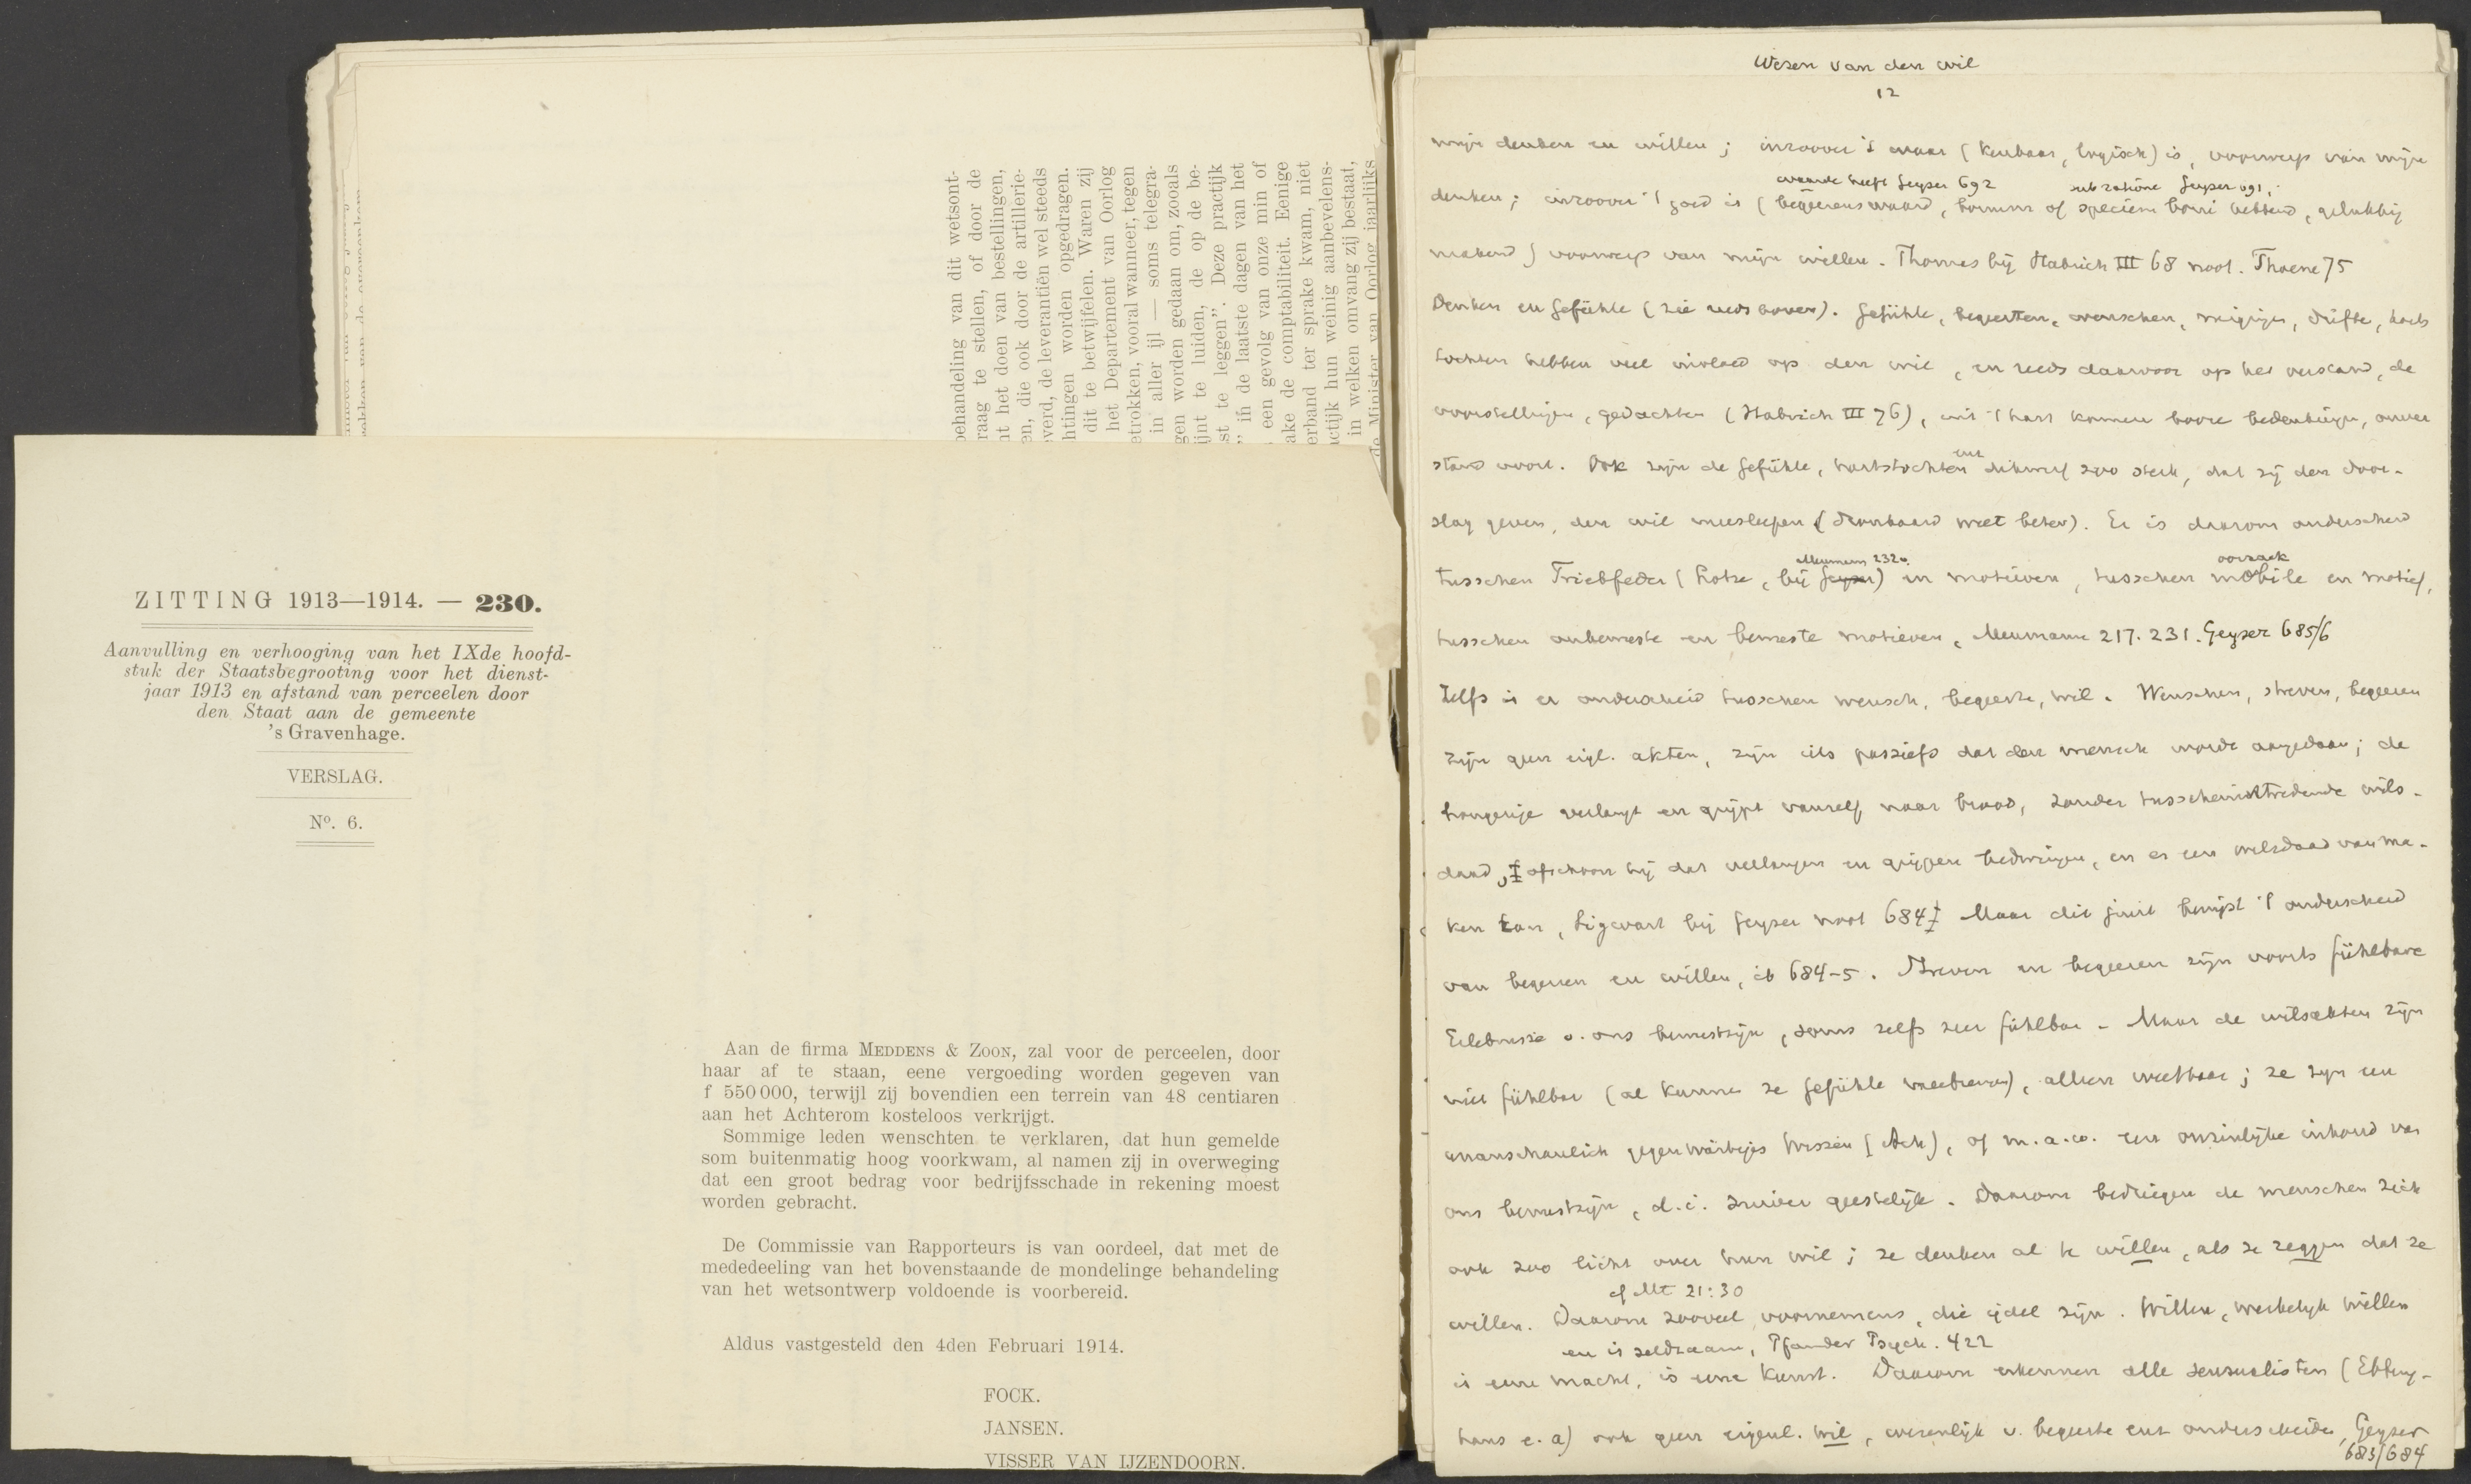 behandeling van dit wetsont-
raag te stellen, of door de
nt het doen van bestellingen,
en, die ook door de artillerie-
everd, de leverantiën wel steeds
htingen worden opgedragen.
dit te betwijfelen. Waren zij
het Departement van Oorlog
etrokken, vooral wanneer, tegen
in aller ijl — soms telegra-
gen worden gedaan om, zooals
ijnt te luiden, de op de be-
st te leggen”. Deze practijk
” in de laatste dagen van het
een gevolg van onze min of
ake de comptabiliteit. Eenige
erband ter sprake kwam, niet
actijk hun weinig aanbevelens-
in welken omvang zij bestaat,
de Minister van Oorlog jaarlijks
ZITTING 1913—1914. — 230.
Aanvulling en verhooging van het IXde hoofd-
stuk der Staatsbegrooting voor het dienst-
jaar 1913 en afstand van perceelen door
den Staat aan de gemeente
's Gravenhage.
VERSLAG.
Nº. 6.
Aan de firma MEDDENS & ZOON, zal voor de perceelen, door
haar af te staan, eene vergoeding worden gegeven van
f 550 000, terwijl zij bovendien een terrein van 48 centiaren
aan het Achterom kosteloos verkrijgt.
Sommige leden wenschten te verklaren, dat hun gemelde
som buitenmatig hoog voorkwam, al namen zij in overweging
dat een groot bedrag voor bedrijfsschade in rekening moest
worden gebracht.
De Commissie van Rapporteurs is van oordeel, dat met de
mededeeling van het bovenstaande de mondelinge behandeling
van het wetsontwerp voldoende is voorbereid.
Aldus vastgesteld den 4den Februari 1914.
FOCK.
JANSEN.
VISSER VAN IJZENDOORN.
Wezen van den wil
12
mijn denken en willen; inzoover 't waar (kenbaar, logisch) is, voorwerp van mijn
waarde heeft Geyser 692 sub ratione Geyser 691,
denken; inzoover 't goed is (begeerenswaard, bonum of speciem boni hebbend, gelukkig
makend) voorwerp van mijn willen. Thomas bij Habrich III 68 noot. Thoene 75
Denken en Gefühle (zie reeds boven). Gefühle, begeerten, wenschen, neigingen, drifte, harts
tochten hebben veel invloed op den wil, en reeds daarvoor op het verstand, de
voorstellingen, gedachten (Habrich III 76), uit 't hart komen booze bedenkingen, onver
stand voort. Ook zijn de Gefühle, hartstochten enz dikwerf zoo sterk, dat zij den door-
slag geven, den wil meesleepen (dronkaard weet beter). Er is daarom onderscheid
Meumann 232. oorzaak
tusschen Triebfeder (Lotze, bij Geyser) en motieven, tusschen mobile en motief,
tusschen onbewuste en bewuste motieven, Meumann 217. 231. Geyser 685/6
Zelfs is er onderscheid tusschen wensch, begeerte, wil. Wenschen, streven, begeeren
zijn geen eigl. akten, zijn iets passiefs dat den mensch wordt aangedaan; de
hongerige verlangt en grijpt vanzelf naar brood, zonder tusschenintredende wils-
daad, ofschoon hij dat verlangen en grijpen bedwingen, en er een wilsdaad van ma-
ken kan, Sigwart bij Geyser noot 684 Maar dit juist bewijst 't onderscheid
van begeeren en willen, ib 684-5. Streven en begeeren zijn voorts fühlbare
Erlebnisse v. ons bewustzijn, soms zelfs zeer fühlbar - Maar de wilsakten zijn
niet fühlbar (al kunnen ze Gefühle meebrengen), alleen weetbaar; ze zijn een
unanschaulich gegenwärtiges Wissen (Ach), of m.a.w. een onzinlijke inhoud van
ons bewustzijn, d.i. zuiver geestelijk. Daarom bedriegen de menschen zich
ook zoo licht over hun wil; ze denken al te willen, als ze zeggen dat ze
cf Mt 21:30
willen. Daarom zooveel voornemens, die ijdel zijn. Willen, werkelijk willen
en is zeldzaam, Pfander Psych. 422
is eene macht, is eene kunst. Daarom erkennen alle sensualisten (Ebbing-
haus e.a) ook geen eigenl. wil, wezenlijk v. begeerte enz onderscheiden, Geyser
683/684